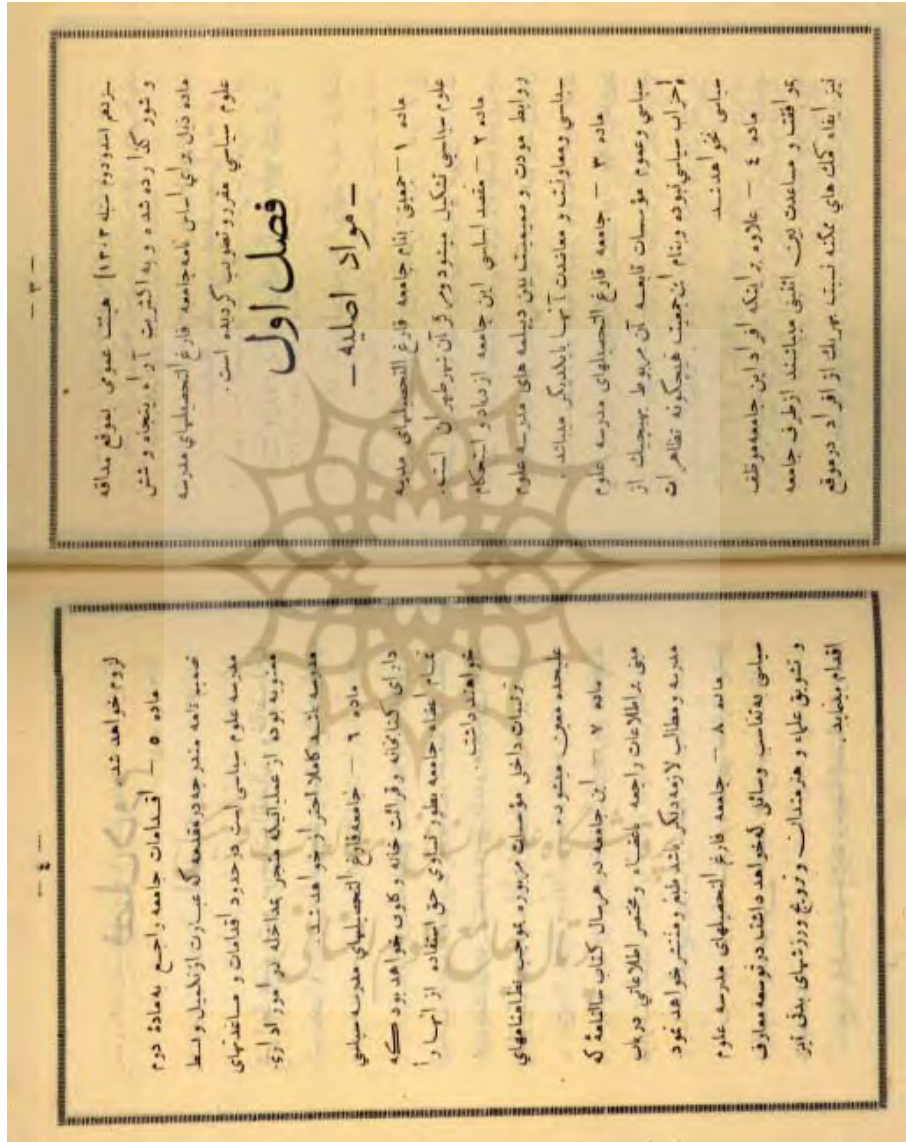 — ۳ —
سیزدهم اسد و دوم سنبله ۱۳۰۳) هیئت عمومی بموقع مداقه
و شور گذارده شده و به اکثریت آراء پنجاه و شش
ماده ذیل برای اساس نامه جامعه فارغ التحصیلهای مدرسه
علوم سیاسی مقرر و تصویب گردیده است.
فصل اول
— مواد اصلیه —
ماده ۱ — جمعیتی بنام جامعه فارغ التحصیلهای مدرسه
علوم سیاسی تشکیل میشود و مرکز آن شهر طهران است.
ماده ۲ — مقصد اساسی این جامعه ازدیاد و استحکام
روابط مودت و صمیمیت بین دیپلمه های مدرسه علوم
سیاسی و معاونت و معاضدت آنها با یکدیگر میباشد.
ماده ۳ — جامعه فارغ التحصیلهای مدرسه علوم
سیاسی و عموم مؤسسات تابعه آن مربوط بهیچیك از
احزاب سیاسی نبوده و بنام این جمعیت هیچگونه تظاهرات
سیاسی نخواهد شد
ماده ٤ — علاوه بر اینکه افراد این جامعه موظف
بموافقت و مساعدت بین الاثنینی میباشند از طرف جامعه
نیز ایفاء کمك های ممکنه نسبت بهریك از افراد در موقع
— ٤ —
لزوم خواهد شد
ماده ٥ — اقدامات جامعه راجع به مادۀ دوم
تصمیم نامه مندرجه در مقدمه که عبارت از تکمیل و بسط
مدرسه علوم سیاسی است در حدود اقدامات و مساعدتهای
معنویه بوده از عملیاتیکه منجر بمداخله در امور اداری
مدرسه باشد کاملا احتراز خواهد شد
ماده ٦ — جامعه فارغ التحصیلهای مدرسه سیاسی
دارای کتابخانه و قرائت خانه و کلوب خواهد بود که
تمام اعضاء جامعه بطور تساوی حق استفاده از آنها را
خواهند داشت.
ترتیبات داخلی مؤسسات مزبوره بموجب نظامنامهای
علیحده معین میشود
ماده ۷ — این جامعه در هر سال کتاب سالنامۀ که
مبنی بر اطلاعات راجعه باعضاء و مختصر اطلاعاتی در باب
مدرسه و مطالب لازمه دیگر باشد طبع و منتشر خواهد نمود
ماده ۸ — جامعه فارغ التحصیلهای مدرسه علوم
سیاسی به تناسب وسائلی که خواهد داشت در توسعه معارف
و تشویق علماء و هنرمندان و ترویج ورزشهای بدنی نیز
اقدام مینماید.